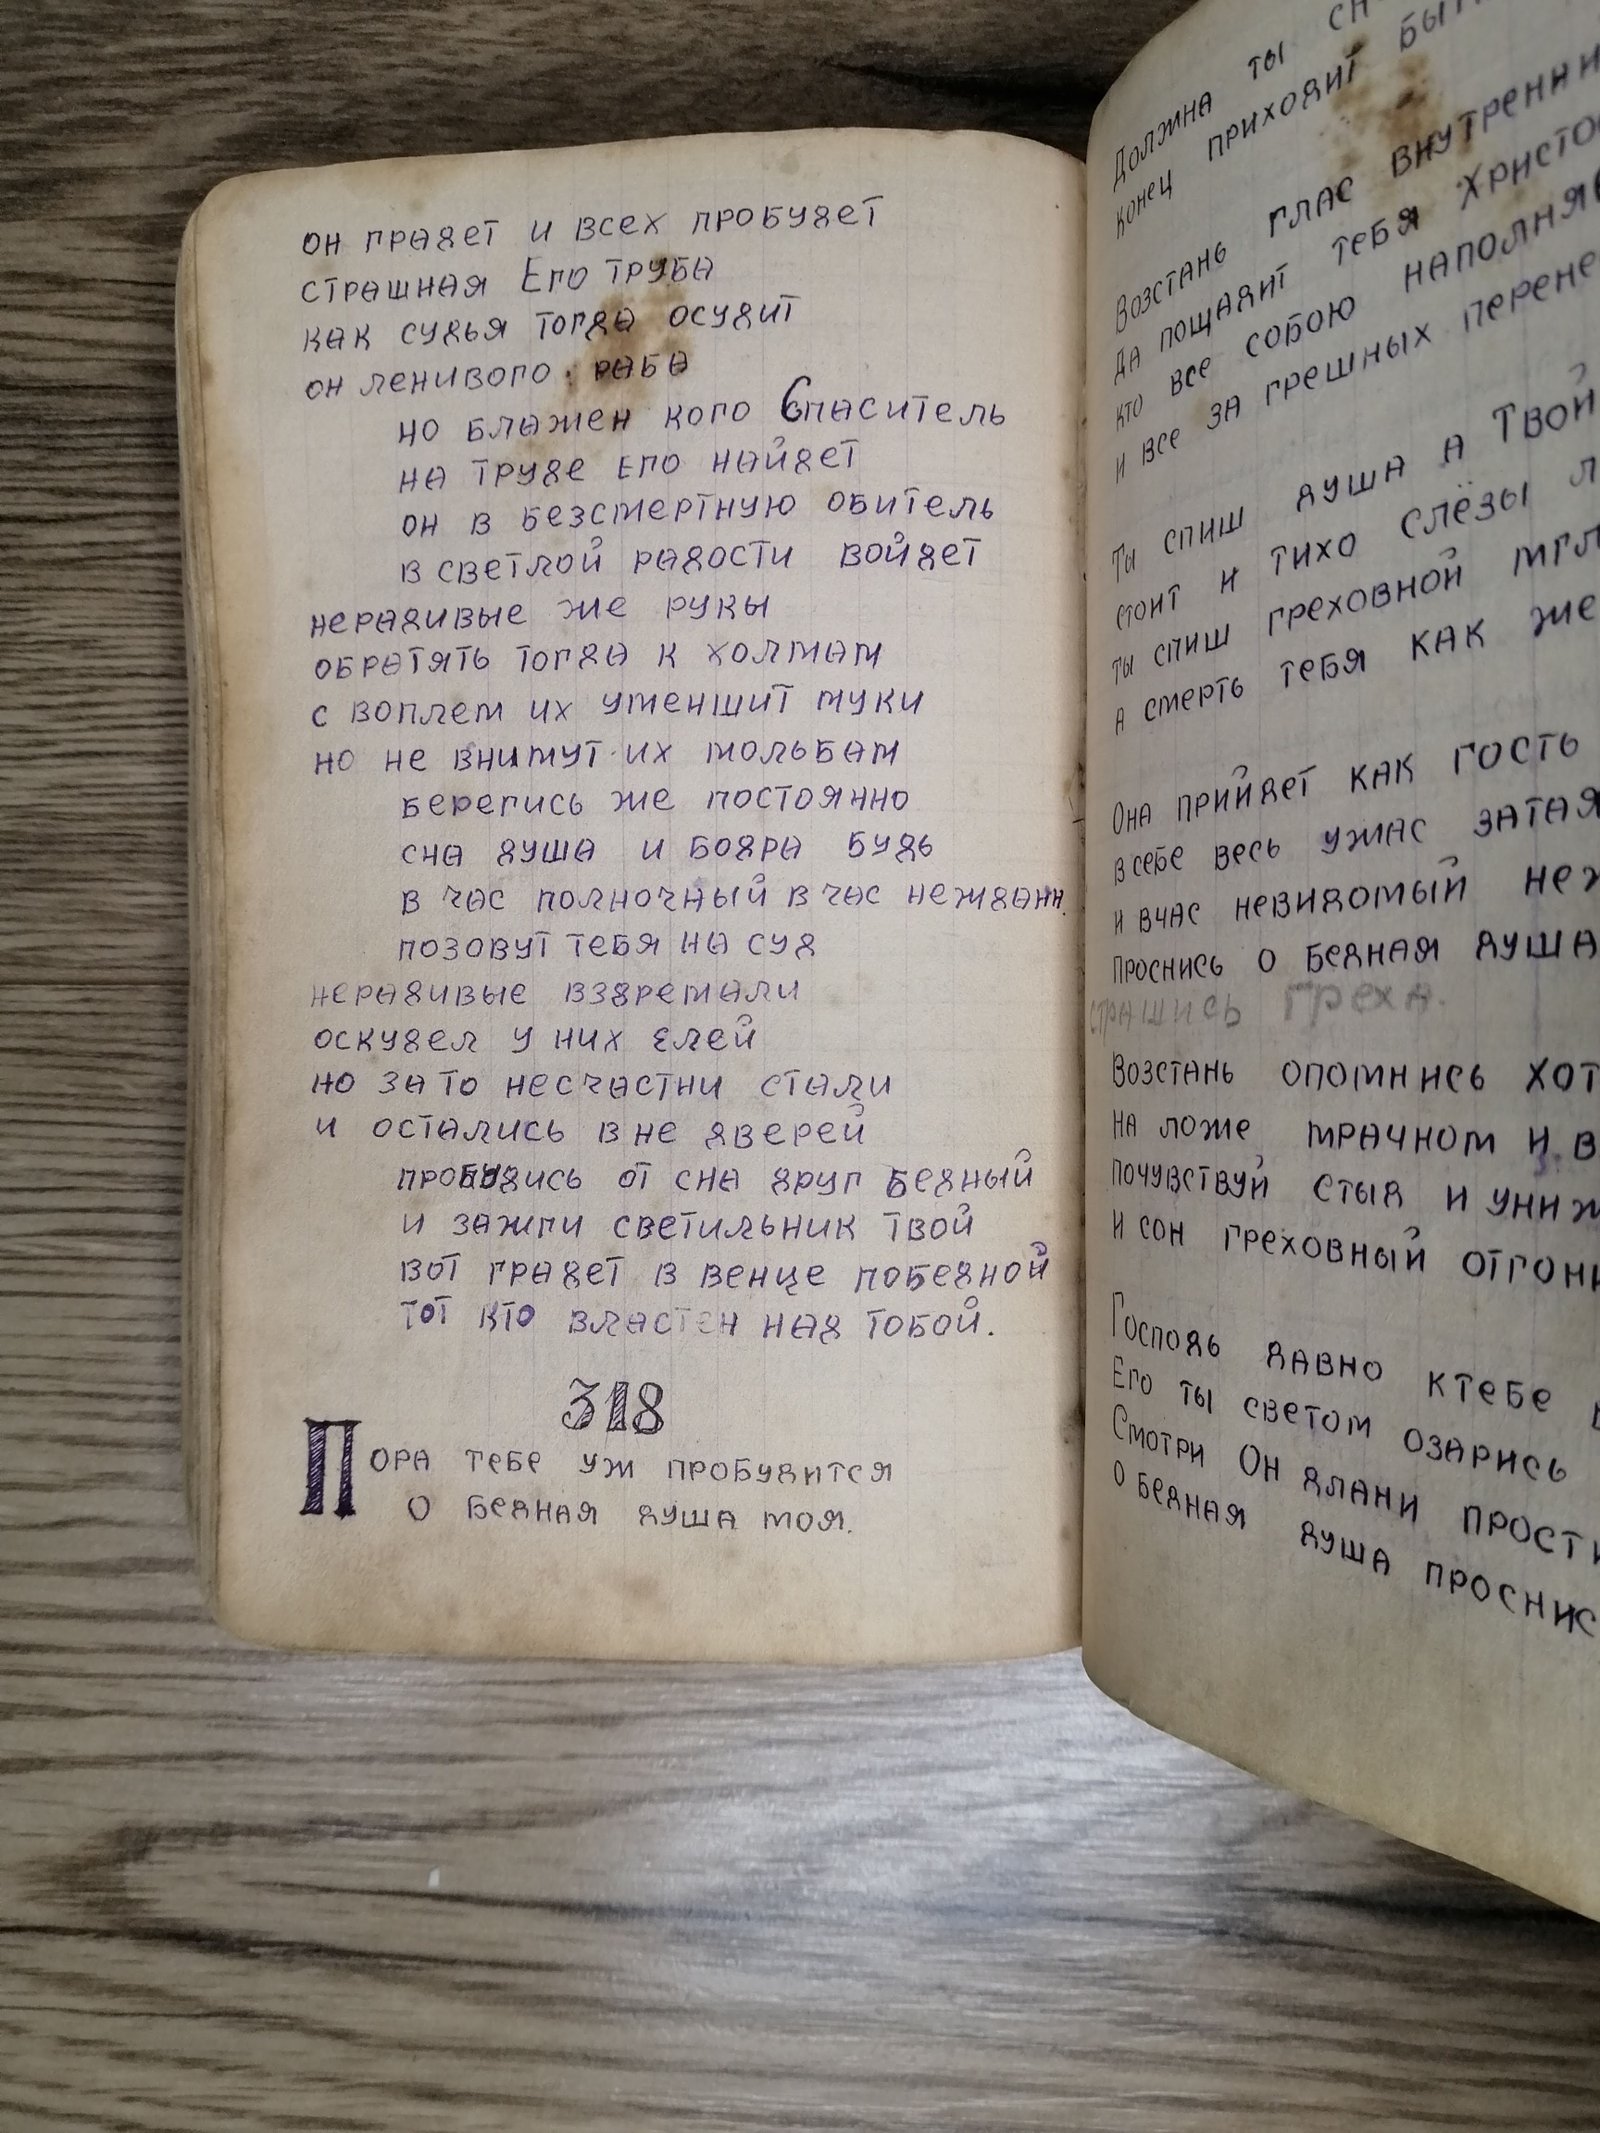 он градет и всех пробудет
страшная Его труба
как судья тогда осудит
он ленивого раба
но блажен кого Спаситель
на труде его найдет
он в безсмертную обитель
в светлой радости войдет
нерадивые же руки
обратять тогда к холмам
с воплем их уменшит муки
но не внимут их мольбам
берегись же постоянно
сна душа и бодра будь
в час полночный в час нежданн.
позовут тебя на суд
нерадивые вздремали
оскудел у них елей
но за то несчастни стали
и остались вне дверей
пробудись от сна друг бедный
и зажги светильник твой
вот градет в венце победной
тот кто властен над тобой.
318
Пора тебе уж пробудится
о бедная душа моя.
Должна ты
конец приходит
Возстань глас внутренни
да пощадит тебя Христо
кто все собою наполня
и все за грешных перене
Ты спиш душа а Твой
стоит и тихо слёзы л
ты спиш греховной мгл
а смерть тебя как же
Она прийдет как гость
в себе весь ужас затая
и вчас невидомый неж
проснись о бедная душа
страшись греха.
Возстань опомнись хот
на ложе мрачном и в
почувствуй стыд и униж
и сон греховный отгони
Господь давно ктебе
Его ты светом озарись
Смотри Он длани прости
о бедная душа проснис